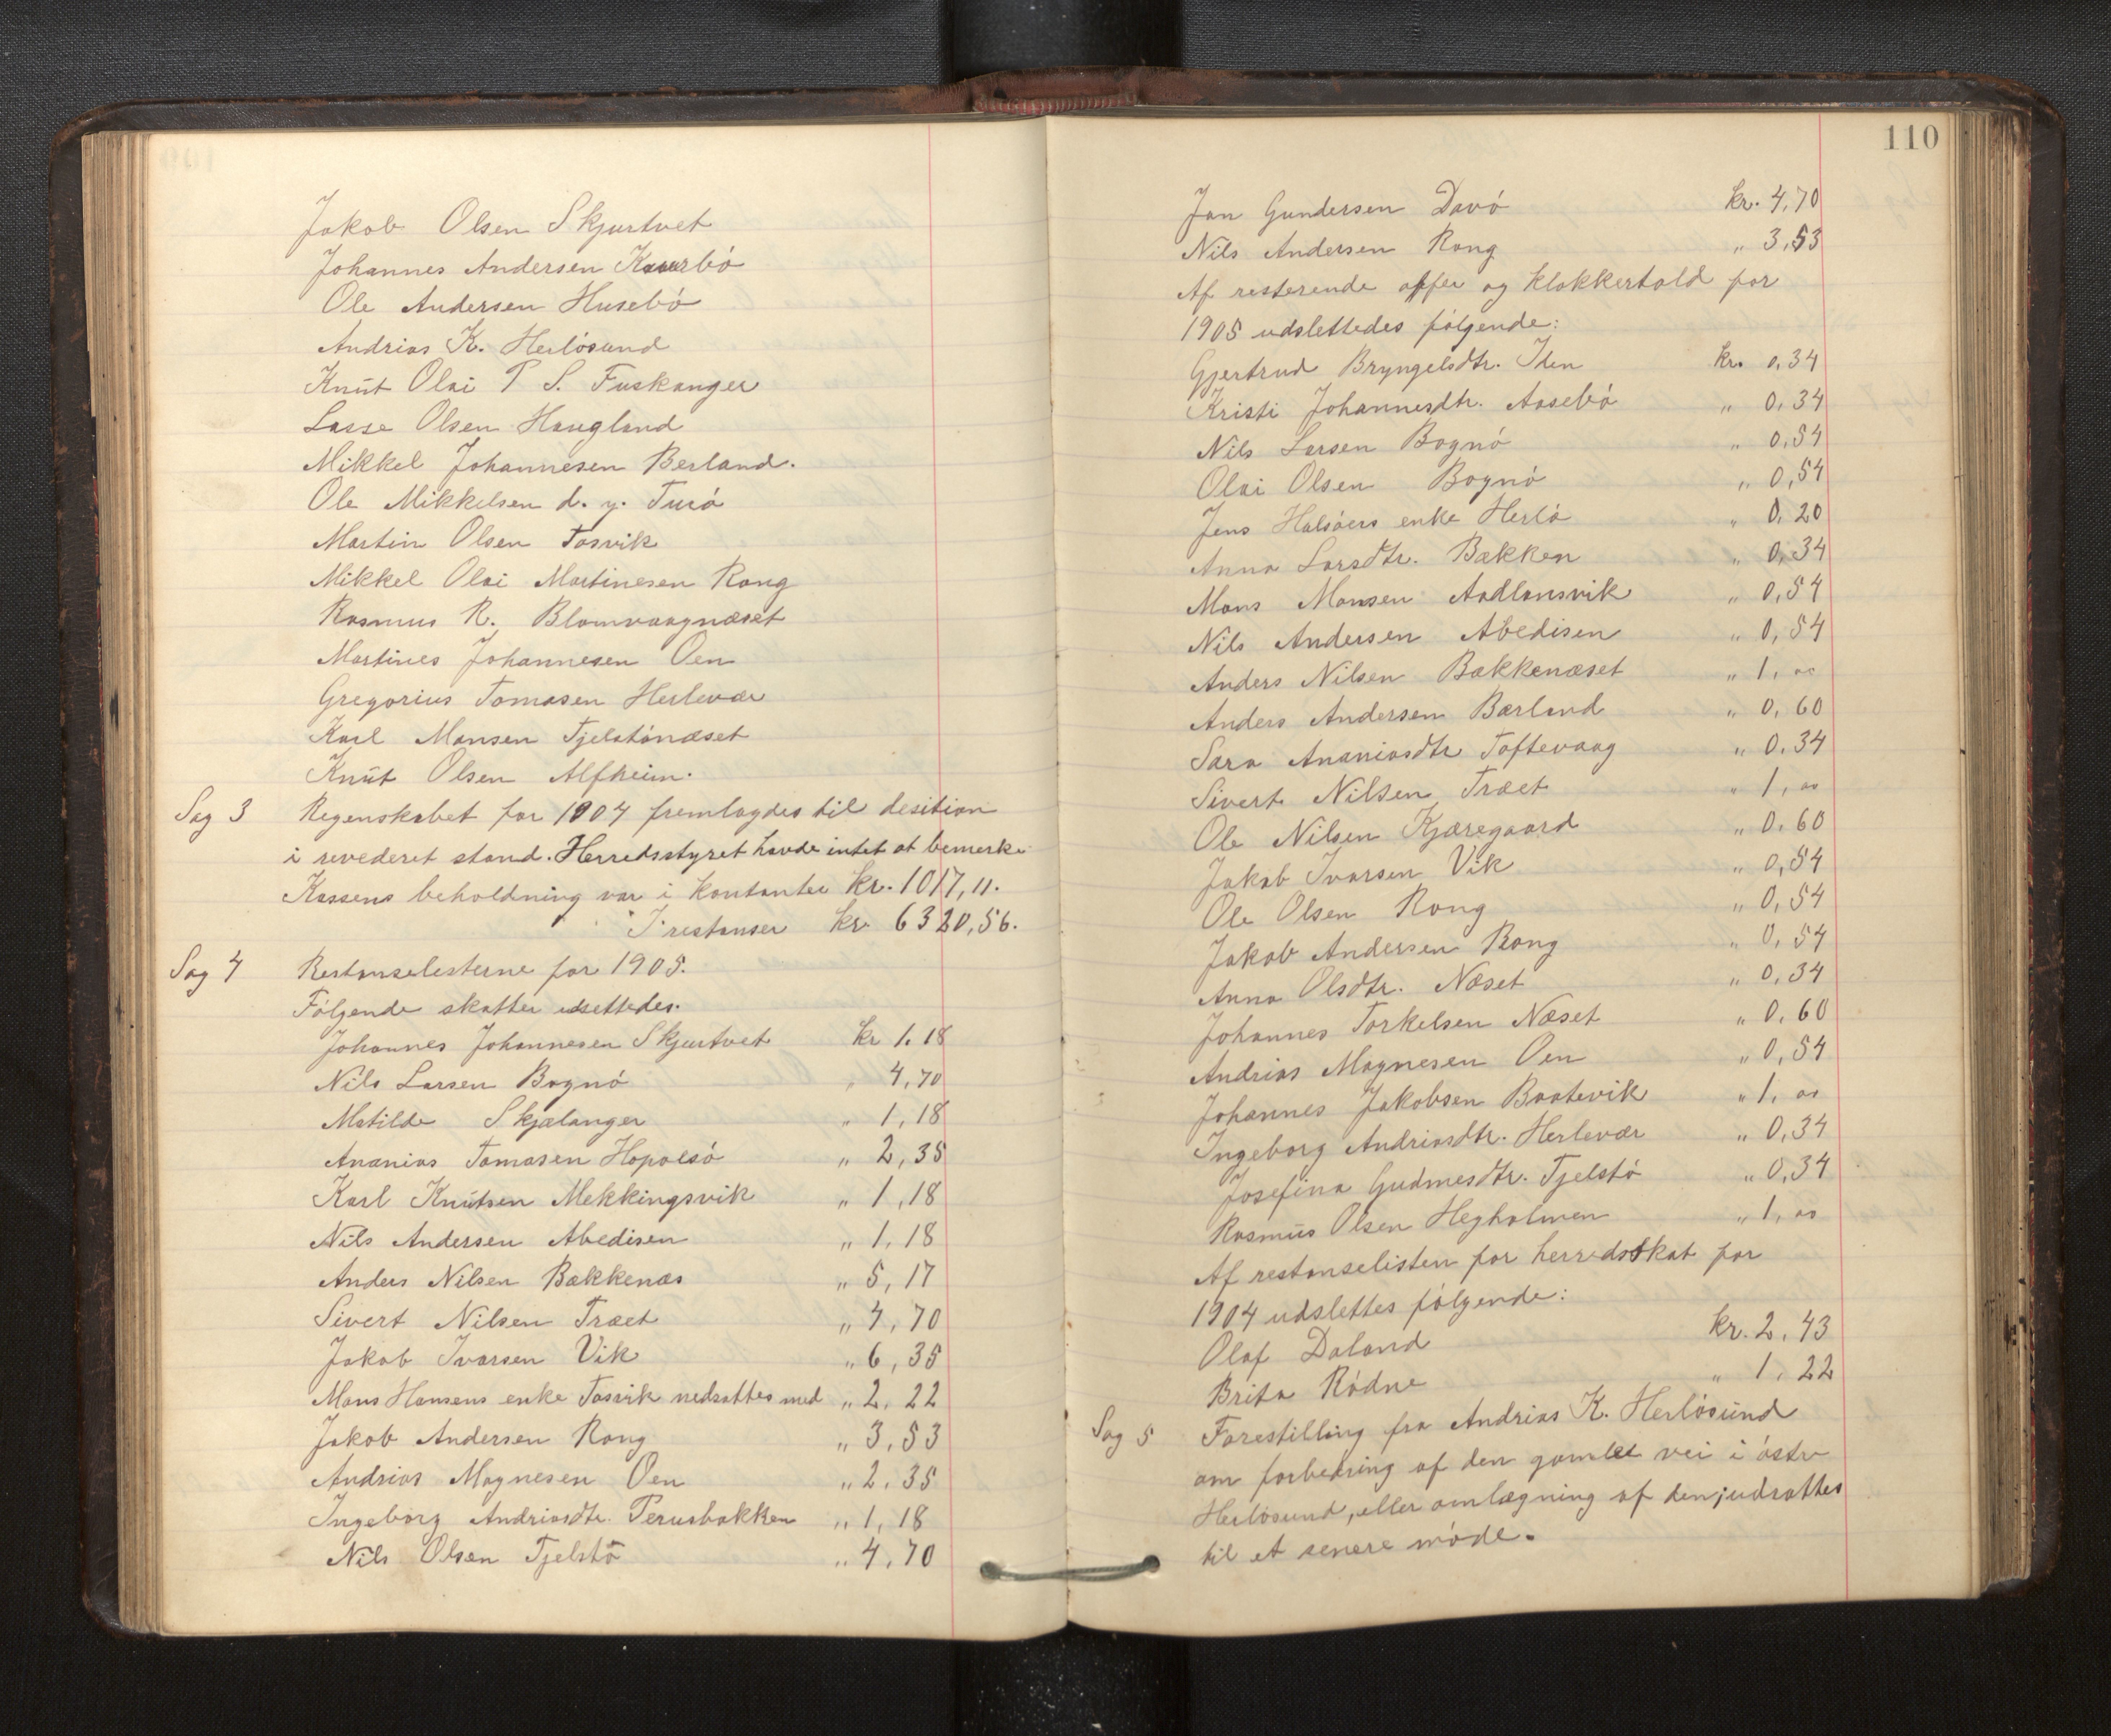 Jakob Olsen Skjurtvet
Johannes Andersen Kaurbö
Ole Andersen Husebö
Andrias K. Herlösund
Knut Olai P S. Fuskanger
Lasse Olsen Haugland
Mikkel Johannesen Berland.
Ole Mikkelsen d. y. Turö
Martin Olsen Tosvik
Mikkel Olai Martinesen Rong
Rasmus R. Blomvaagnæset
Martines Johannesen Oen
Gregorius Tomasen Herlevær
Karl Monsen Tjelstönæset
Knut Olsen Alfheim.
Sag 3 Regenskabet for 1904 fremlagdes til desition
i revederet stand. Herredsstyret havde intet at bemerke
Kassens beholdning var i kontanter kr. 1017,11.
I restanser kr 6320,56.
Sag 4 Restanselisterne for 1905.
Følgende skatter udsettedes.
Johannes Johannesen Skjurtvet kr 1.18
Nils Larsen Bognö " 4,70
Matilde Skjælanger " 1,18
Ananias Tomasen Hopolsö " 2,35
Karl Knutsen Mekkingsvik " 1,18
Nils Andersen Abedisen " 1,18
Anders Nilsen Bækkenæs " 5,17
Sivert Nilsen Træet " 4,70
Jakob Ivarsen Vik " 6,35
Mons Hansens enke Tosvik nedsattes med " 2,22
Jakob Andersen Rong " 3,53
Andrias Magnesen Oen " 2,35
Ingeborg Andriasdtr. Perusbakken " 1,18
Nils Olsen Tjelstö " 4,70
110
Jan Gundersen Davö kr. 4,70
Nils Andersen Rong " 3,53
Af resterende offer og klokkertold for
1905 udslettedes følgende:
Gjertrud Bryngelsdtr. Iden kr. 0,34
Kristi Johannesdtr. Aasebö " 0,34
Nils Larsen Bognö " 0,54
Olai Olsen Bognö " 0,54
Jens Halsöers enke Herlö " 0,20
Anna Larsdtr. Bakken " 0,34
Mons Monsen Aadlansvik " 0,54
Nils Andersen Abedisen " 0,54
Anders Nilsen Bakkenæset " 1,00
Anders Andersen Bærland " 0,60
Sara Ananiasdtr Toftevaag " 0,34
Sivert Nilsen Træet " 1,00
Ole Nilsen Kjæregaard " 0,60
Jakob Ivarsen Vik " 0,54
Ole Olsen Rong " 0,54
Jakob Andersen Rong " 0,54
Anna Olsdtr. Næset " 0,34
Johannes Torkelsen Næset " 0,60
Andrias Magnesen Oen " 0,54
Johannes Jakobsen Baatevik " 1,00
Ingeborg Andriasdtr. Herlevær " 0,34
Josefina Gudmesdtr. Tjelstö " 0,34
Rasmus Olsen Hegholmen " 1,00
Af restanselisten for herredsskat for
1904 udslettes følgende:
Olaf Daland kr. 2,43
Brita Rödne " 1,22
Sag 5 Forestilling fra Andrias K. Herlösund
om forbedring af den gamle vei i östre
Herlösund, eller omlægning af den; udsattes
til et senere möde.